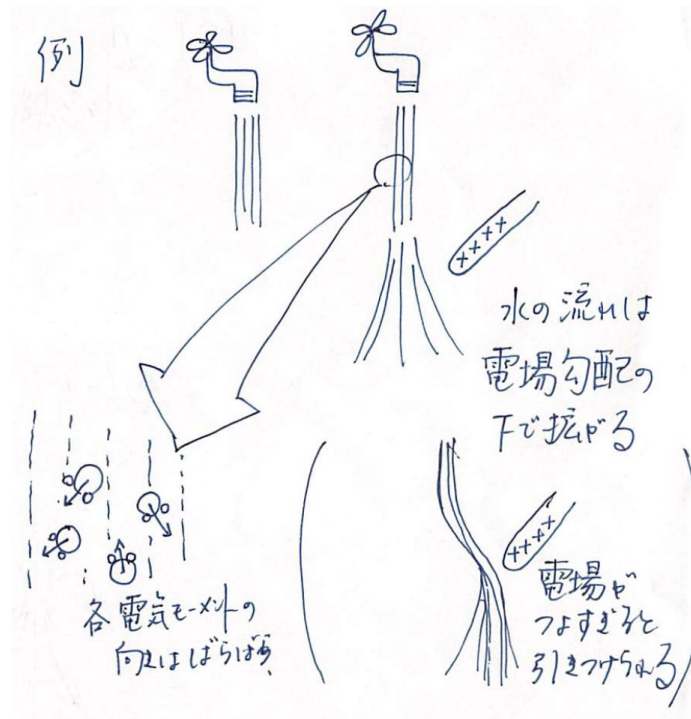 例
++++
水の流れは
電場勾配の
下で拡がる
各電気モーメントの
向きはばらばら
++++
電場が
つよすぎると
引きつけられる